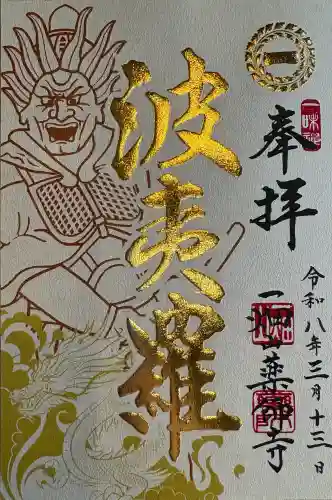 奉拝
令和八年三月十三日
波夷羅
一畑山薬師寺